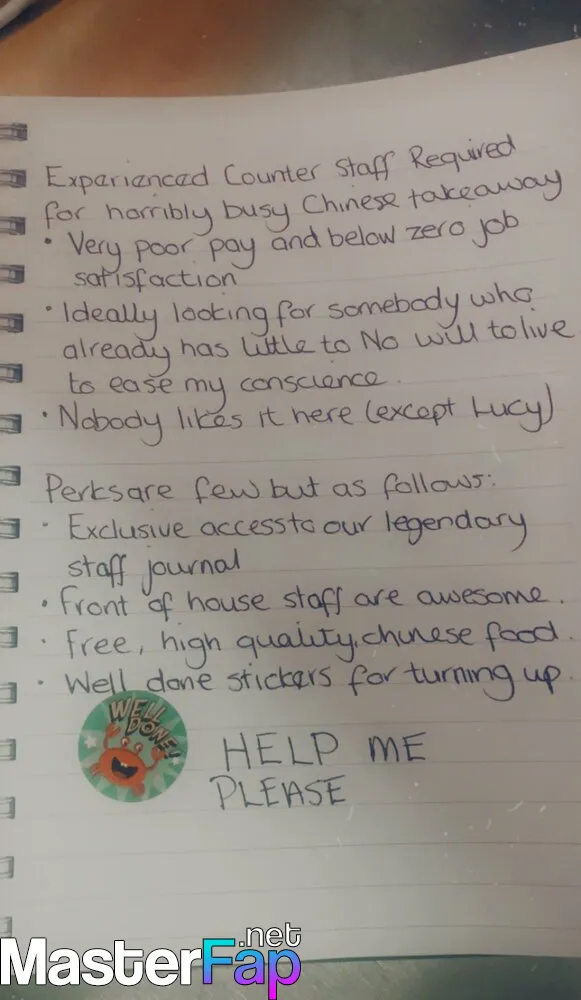 Experienced Counter Staff Required
for horribly busy Chinese takeaway
• Very poor pay and below zero job
satisfaction
• Ideally looking for somebody who
already has little to No will to live
to ease my conscience.
• Nobody likes it here (except Lucy)
Perks are few but as follows:
• Exclusive access to our legendary
staff journal
• Front of house staff are awesome.
• Free, high quality, chinese food.
• Well done stickers for turning up.
WELL
DONE!
HELP ME
PLEASE
.net
MasterFap